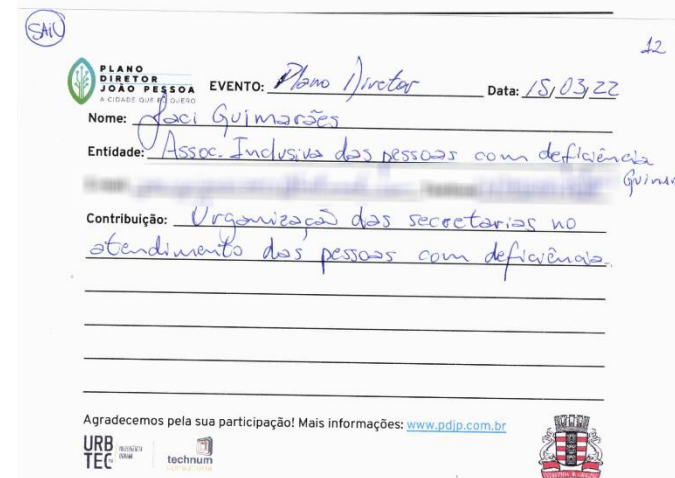 SAIU
12
PLANO
DIRETOR
JOÃO PESSOA
A CIDADE QUE EU QUERO
EVENTO: Plano Diretor Data: 15/03/22
Nome: Jaci Guimarães
Entidade: Assoc. Inclusiva das pessoas com deficiência
Contribuição: Organização das secretarias no
atendimento das pessoas com deficiência.
Agradecemos pela sua participação! Mais informações: www.pdjp.com.br
URB
TEC
technum